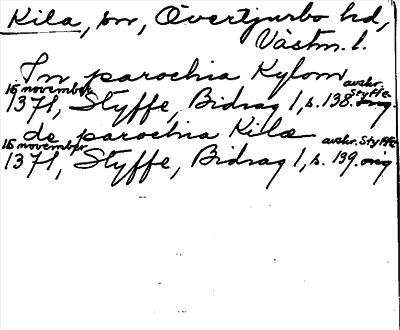 Kila, sn, Övertjurbo hd,
Västm. l.
In parochia Kylom
15 november avskr. Styffe
1371, Styffe, Bidrag 1, s. 138. orig.
de parochia Kilæ
15 november avskr. Styffe
1371, Styffe, Bidrag 1, s. 139. orig